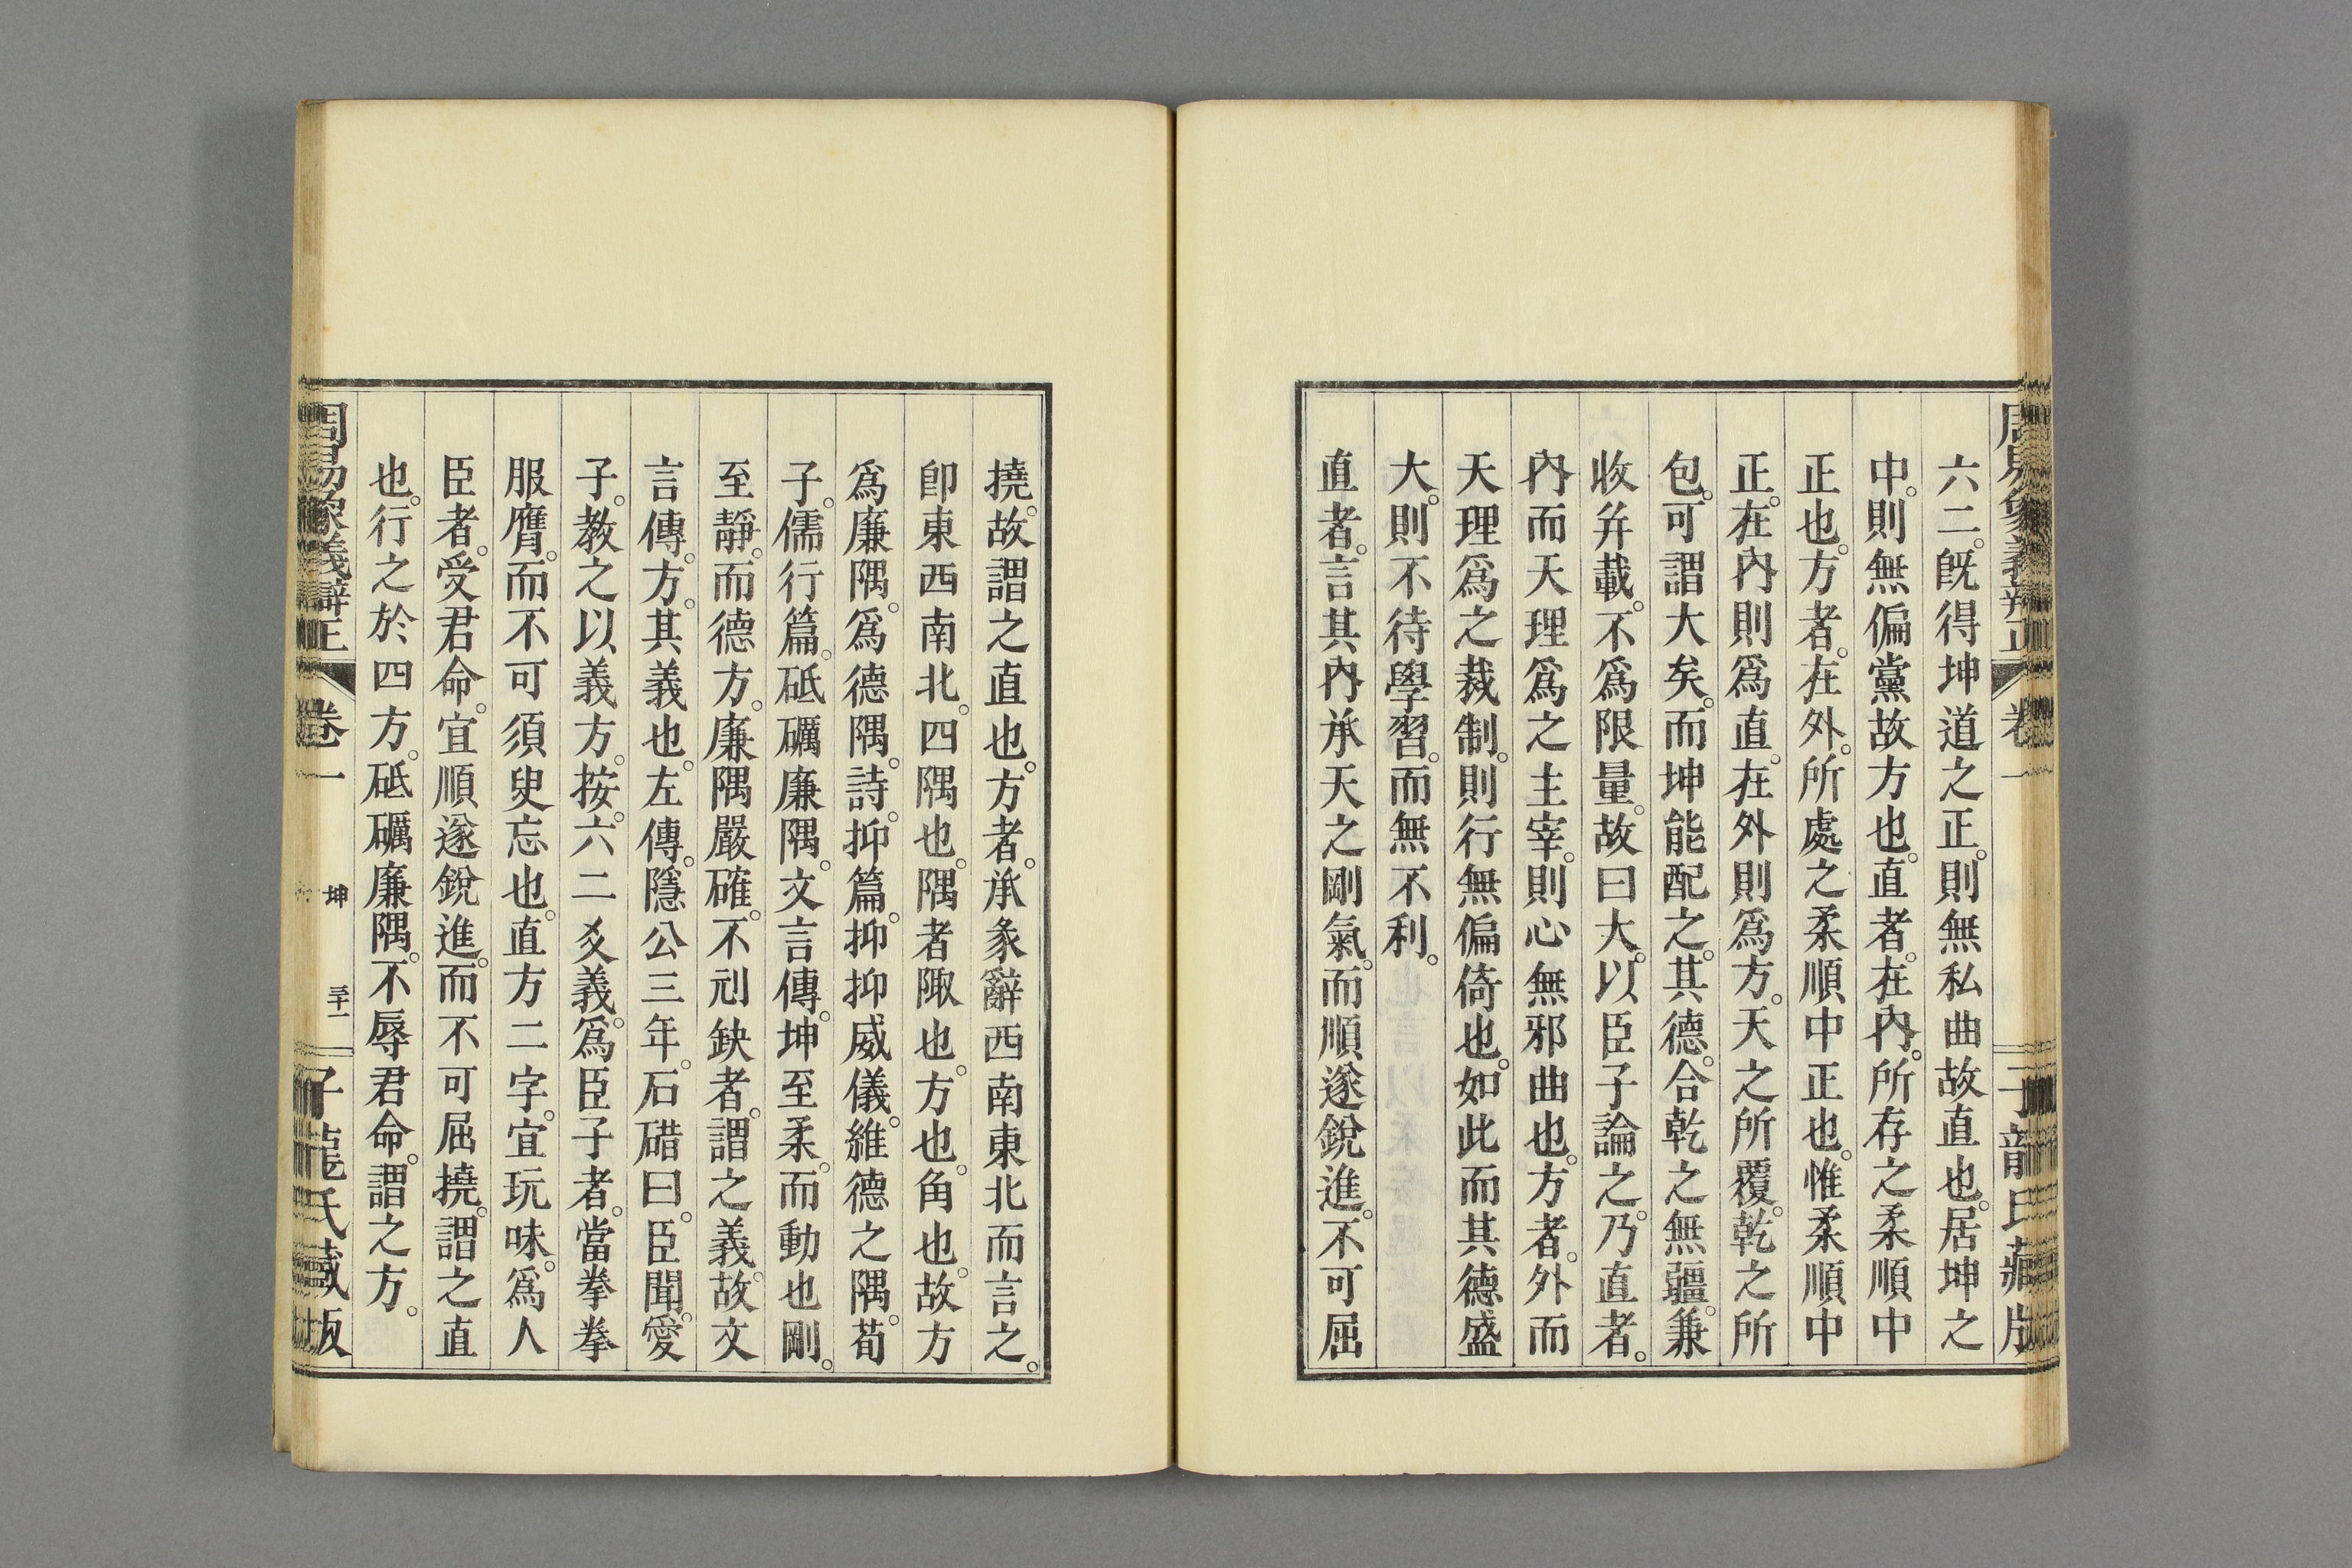 六二。旣得坤道之正。則無私曲故直也。居坤之
中。則無偏黨故方也。直者。在內。所存之柔順中
正也。方者。在外。所處之柔順中正也。惟柔順中
正。在內則爲直。在外則爲方。天之所覆。乾之所
包。可謂大矣。而坤能配之。其德。合乾之無疆。兼
收并載。不爲限量。故曰大。以臣子論之。乃直者。
內而天理爲之主宰。則心無邪曲也。方者。外而
天理爲之裁制。則行無偏倚也。如此而其德盛
大。則不待學習。而無不利。
直者。言其內承天之剛氣。而順遂銳進。不可屈
撓。故謂之直也。方者。承彖辭西南東北而言之。
卽東西南北。四隅也。隅者陬也。方也。角也。故方
爲廉隅。爲德隅。詩。抑篇。抑抑威儀。維德之隅。荀
子。儒行篇。砥礪廉隅。文言傳。坤至柔。而動也剛。
至靜。而德方。廉隅嚴確。不刓缺者。謂之義。故文
言傳。方。其義也。左傳。隱公三年。石碏曰。臣聞。愛
子。教之以義方。按。六二爻義。爲臣子者。當拳拳
服膺。而不可須臾忘也。直方二字。宜玩味。爲人
臣者。受君命。宜順遂銳進。而不可屈撓。謂之直
也。行之於四方。砥礪廉隅。不辱君命。謂之方。
周易象義辯正 卷一 坤 三十一 子龍氏藏版